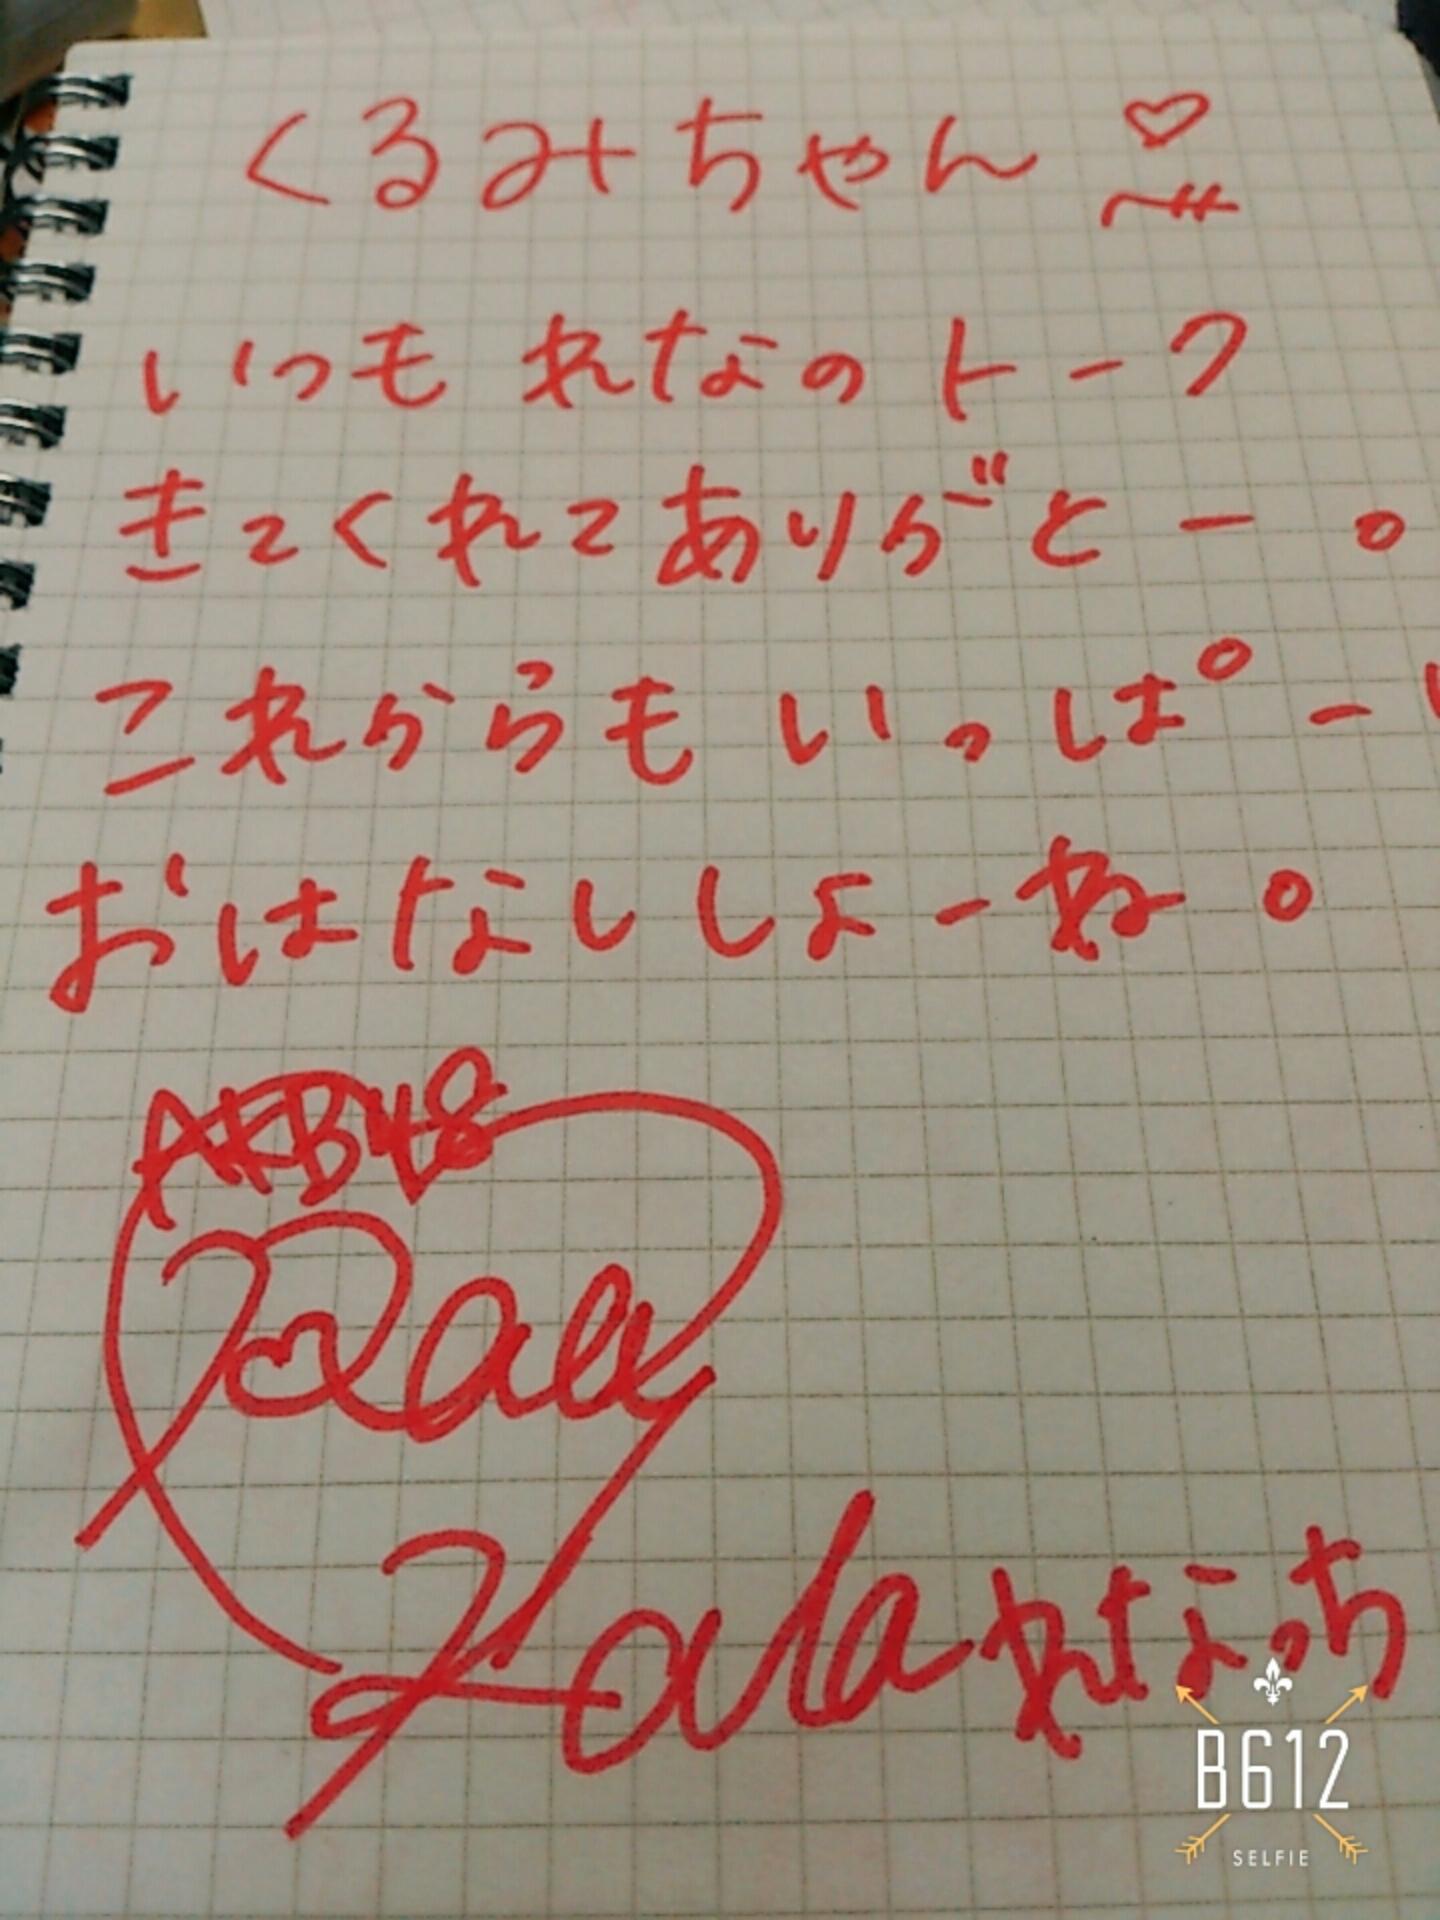 くるみちゃん♡
いつもれなのトーク
きてくれてありがとー。
これからもいっぱーい
おはなししよーね。
AKB48
れなっち
B612
SELFIE